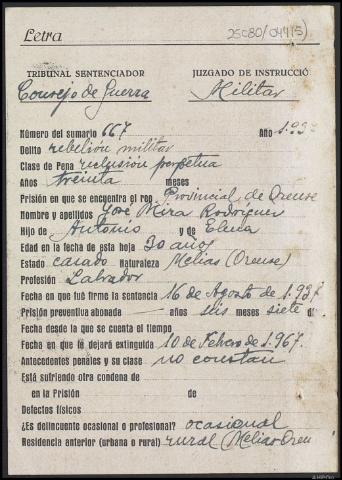 Letra
25080/044(5)
TRIBUNAL SENTENCIADOR
JUZGADO DE INSTRUCCIÓ
Consejo de Guerra
Militar
Número del sumario 667 Año 1.93
Delito rebelión militar
Clase de Pena reclusión perpetua
Años treinta meses
Prisión en que se encuentra el reo Provincial de Orense
Nombre y apellidos José Mira Rodríguez
Hijo de Antonio y de Elena
Edad en la fecha de esta hoja 30 años
Estado casado Naturaleza Melias (Orense)
Profesión Labrador
Fecha en que fué firme la sentencia 16 de Agosto de 1.937
Prisión preventiva abonada — años seis meses siete d
Fecha desde la que se cuenta el tiempo
Fecha en que la dejará extinguida 10 de Febrero de 1.967.
Antecedentes penales y su clase no constan
Está sufriendo otra condena de
en la Prisión de
Defectos físicos
¿Es delincuente ocasional o profesional? ocasional
Residencia anterior (urbana o rural) rural (Melias-Oren